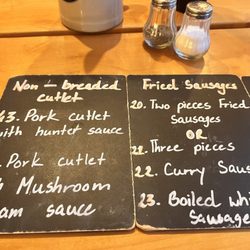 Non - breaded
cutlet
43. Pork cutlet
with hunter sauce
Pork cutlet
Mushroom
sauce
Fried Sausages
20. Two pieces Fried
Sausages
OR
21. Three pieces
22. Curry Saus
23. Boiled whi
Sausage